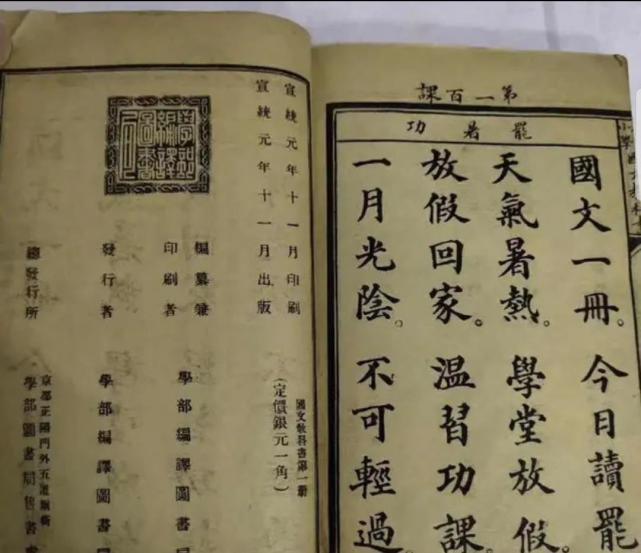 第一百課
罷暑功
國文一冊。今日讀罷
天氣暑熱。學堂放假。
放假回家。溫習功課
一月光陰。不可輕過。
宣統元年十一月印刷
宣統元年十一月出版
國文教科書第一冊
(定價銀元一角)
編纂兼
印刷者
學部編譯圖書局
發行者
學部編譯圖書
總發行所
京都正陽門外五道廟街
學部圖書局售書